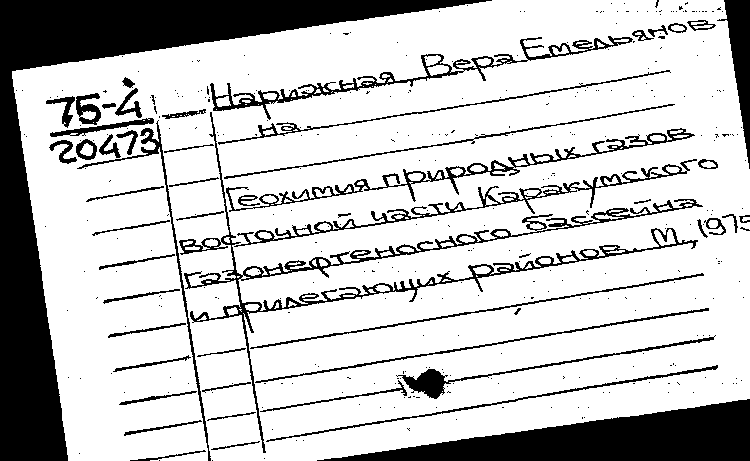 75-4
20473
Нарижная, Вера Емельянов-
на.
Геохимия природных газов
восточной части Каракумского
газонефтеносного бассейна
и прилегающих районов. М., 1975